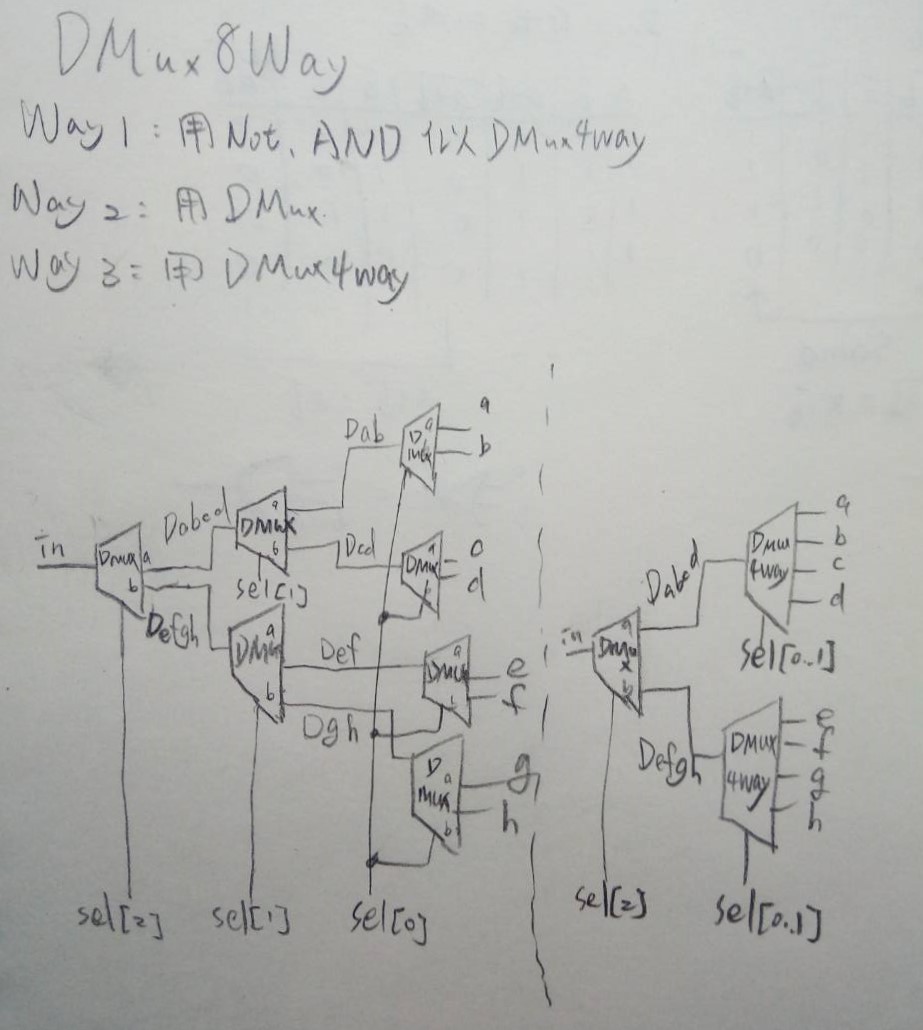 DMux8Way
Way 1: 用Not、AND 似 DMux4way
Way 2: 用 DMux.
Way 3: 用 DMux4way
Dab
D mux a b
a
b
in
Dmux a b
Dabcd
DMux a b
sel[1]
Dcd
DMux
c
d
Defgh
DMux a b
Def
DMux a b
e
f
Dgh
D mux a b
g
h
sel[2]
sel[1]
sel[0]
in
Dmux a b
Dabcd
DMux 4way
a
b
c
d
sel[0..1]
Defgh
DMux 4way
e
f
g
h
sel[2]
sel[0..1]